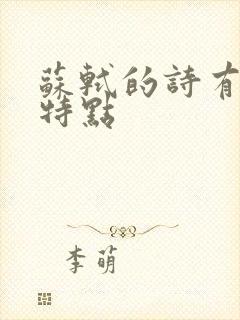 蘇軾的詩有
特點
李萌